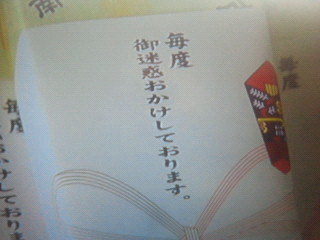 毎度
御迷惑おかけしております。
毎度
毎度
迷惑おかけしておりま